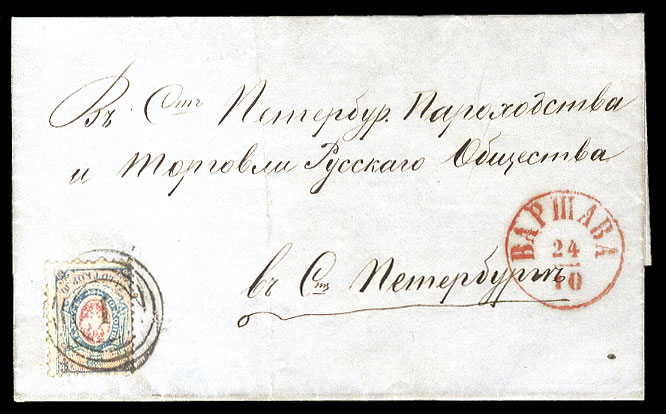 Въ Ст. Петербур. Пароходства
и Торговли Русскаго Общества
въ Ст. Петербургъ
ВАРШАВА
24
10